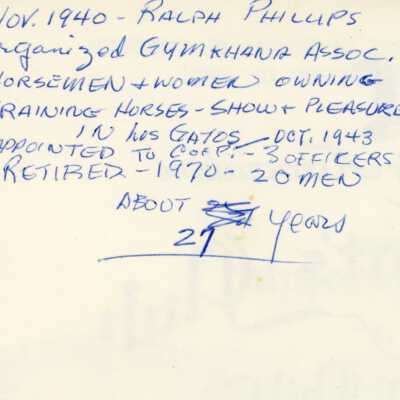 NOV. 1940 - RALPH PHILLIPS
Organized GYMKHANA ASSOC.
HORSEMEN + WOMEN OWNING
TRAINING HORSES - SHOW + PLEASURE
IN LOS GATOS - OCT. 1943
APPOINTED TO CofP. - 3 OFFICERS
RETIRED - 1970 - 20 MEN
ABOUT years
27